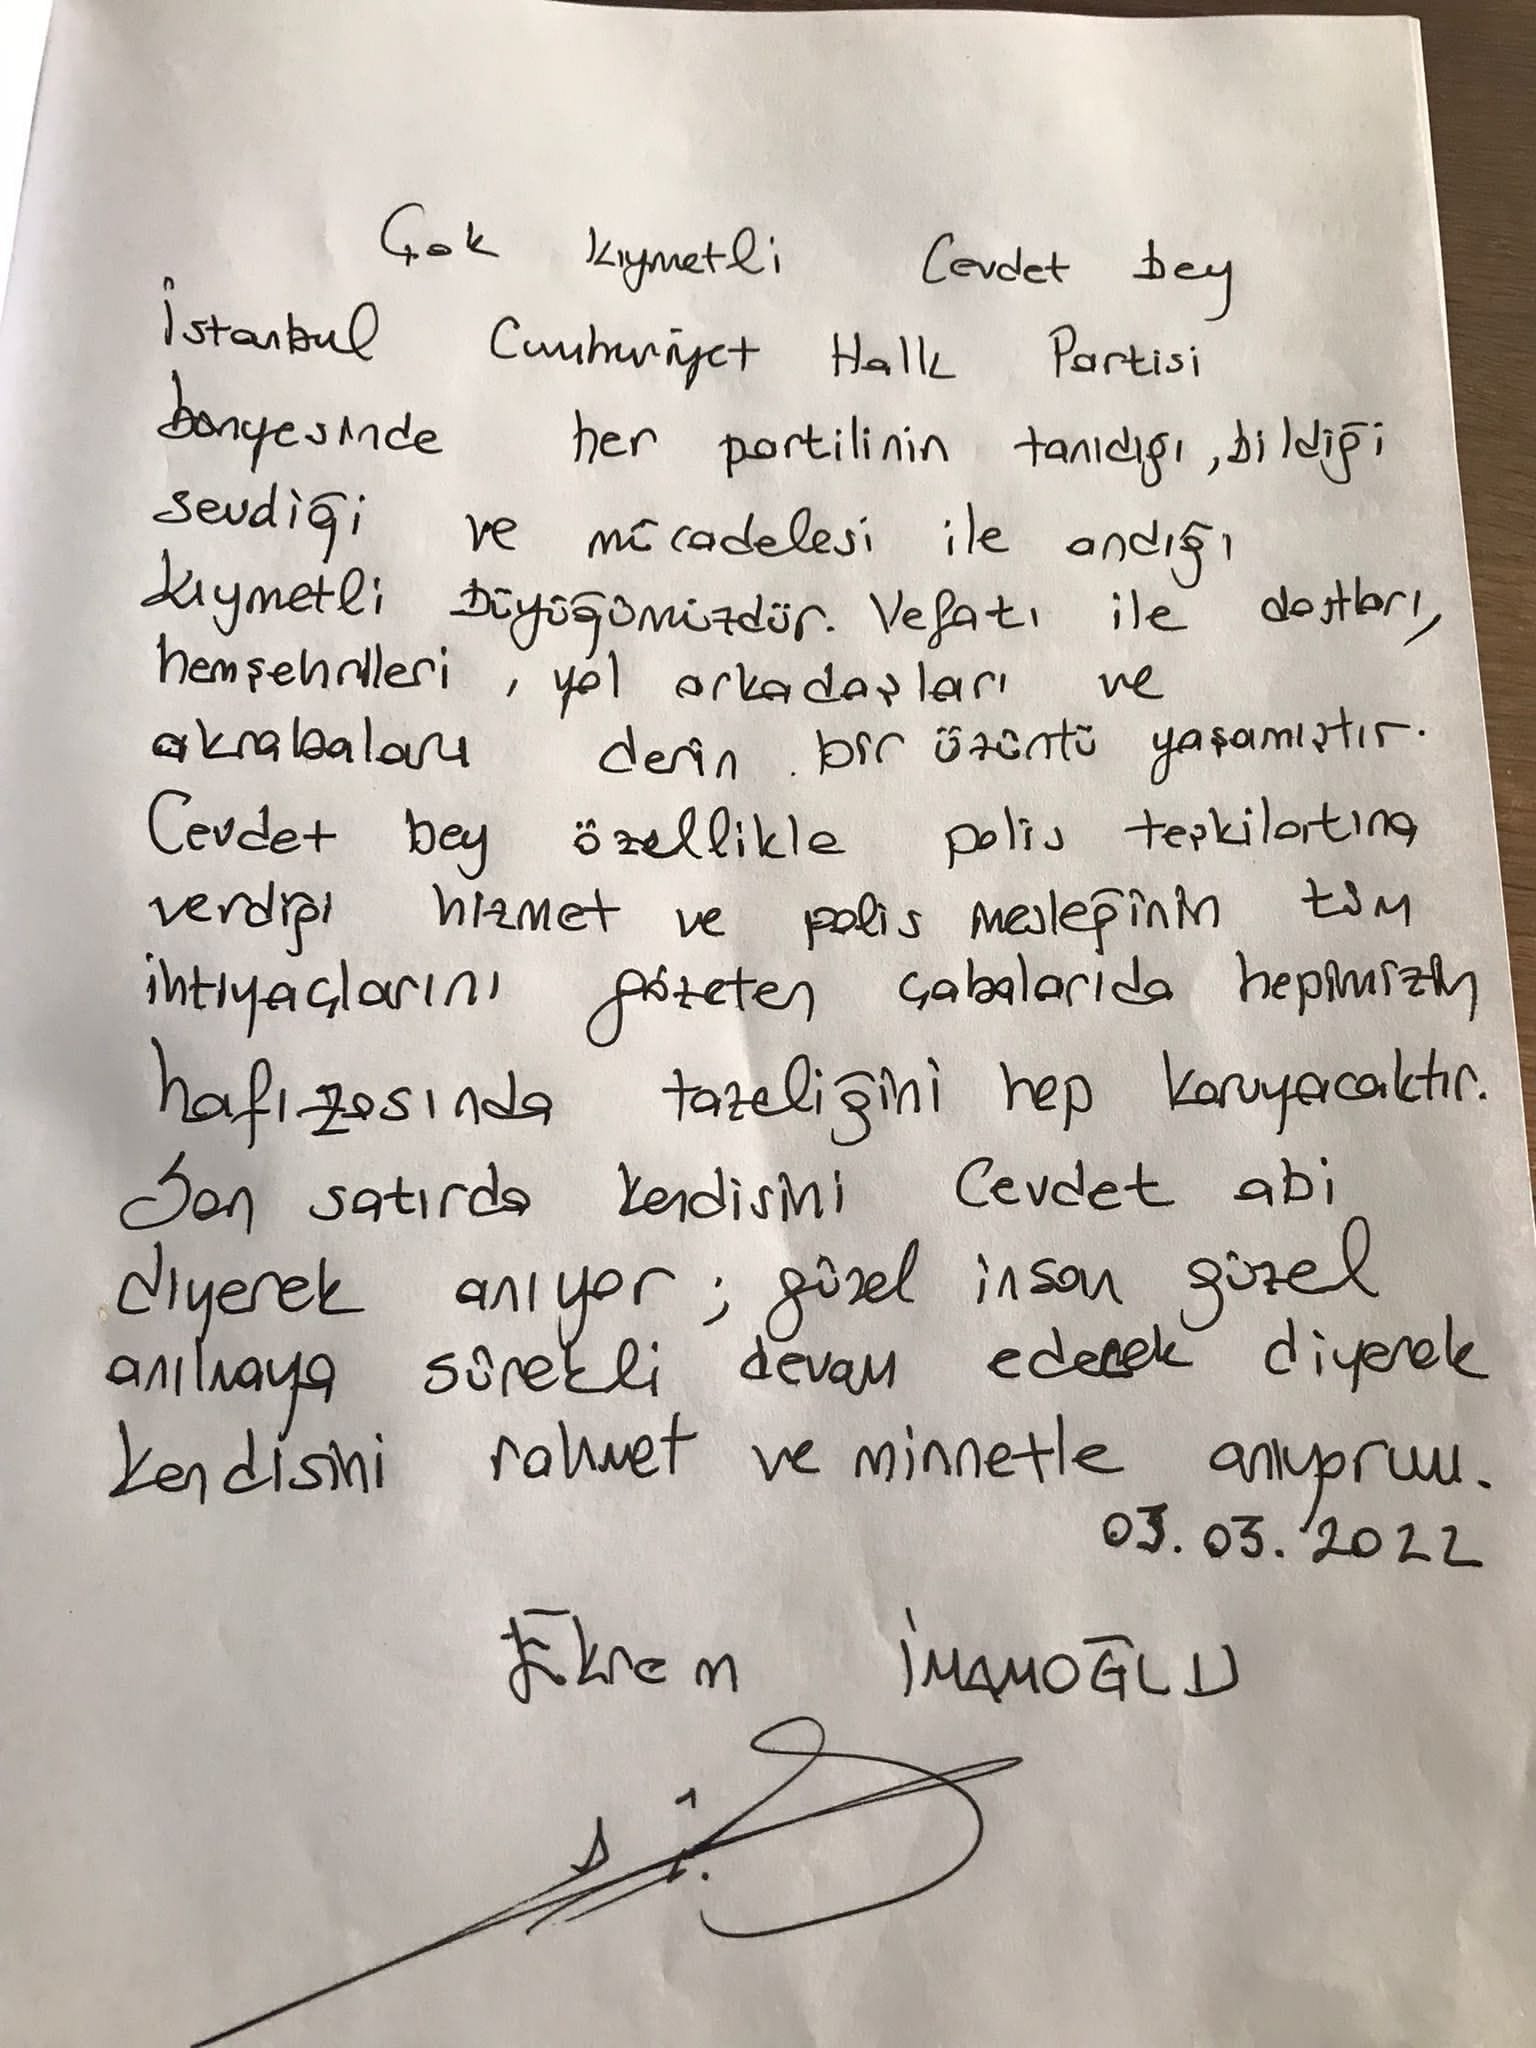 Çok kıymetli Cevdet bey
İstanbul Cumhuriyet Halk Partisi
bünyesinde her partilinin tanıdığı, bildiği
sevdiği ve mücadelesi ile andığı
kıymetli Büyüğümüzdür. Vefatı ile dostları,
hemşehrileri, yol arkadaşları ve
akrabaları derin bir üzüntü yaşamıştır.
Cevdet bey özellikle polis teşkilatına
verdiği hizmet ve polis mesleğinin tüm
ihtiyaçlarını gözeten çabalarıda hepimizin
hafızasında tazeliğini hep koruyacaktır.
Son satırda kendisini Cevdet abi
diyerek anıyor; güzel insan güzel
anılmaya sürekli devam edecek diyerek
kendisini rahmet ve minnetle anıyorum.
03.03.2022
Ekrem İMAMOĞLU